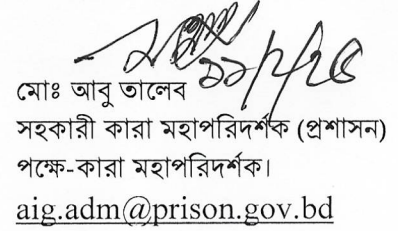 মোঃ আবু তালেব
সহকারী কারা মহাপরিদর্শক (প্রশাসন)
পক্ষে-কারা মহাপরিদর্শক।
aig.adm@prison.gov.bd